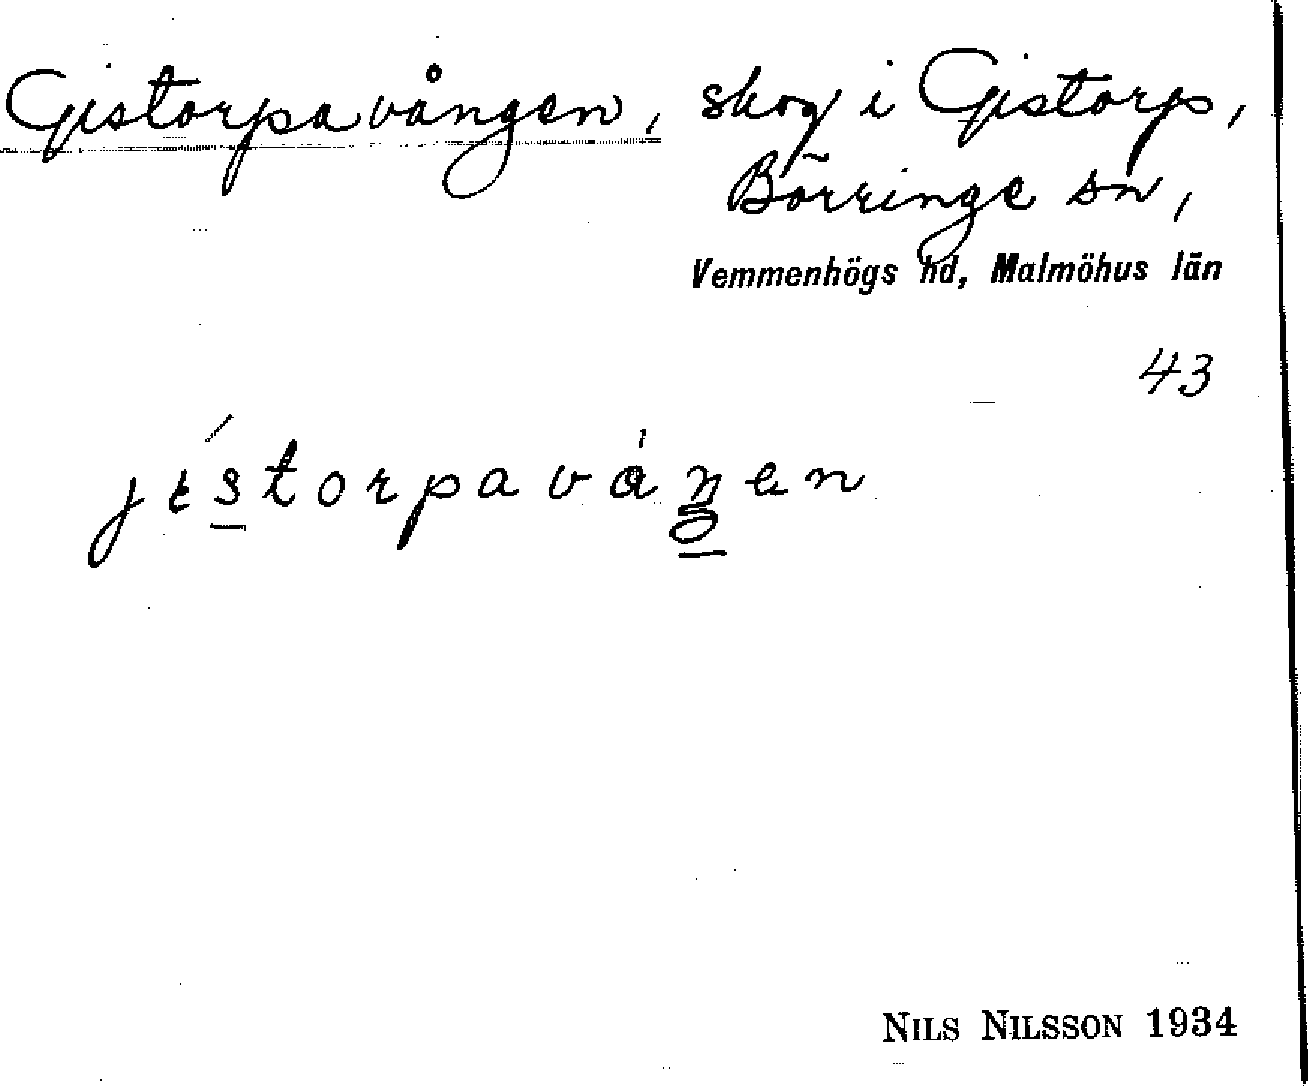 Gistorpavången, skog i Gistorp,
Börringe sn,
Vemmenhögs hd, Malmöhus län
43
jistorpavåŋen
NILS NILSSON 1934